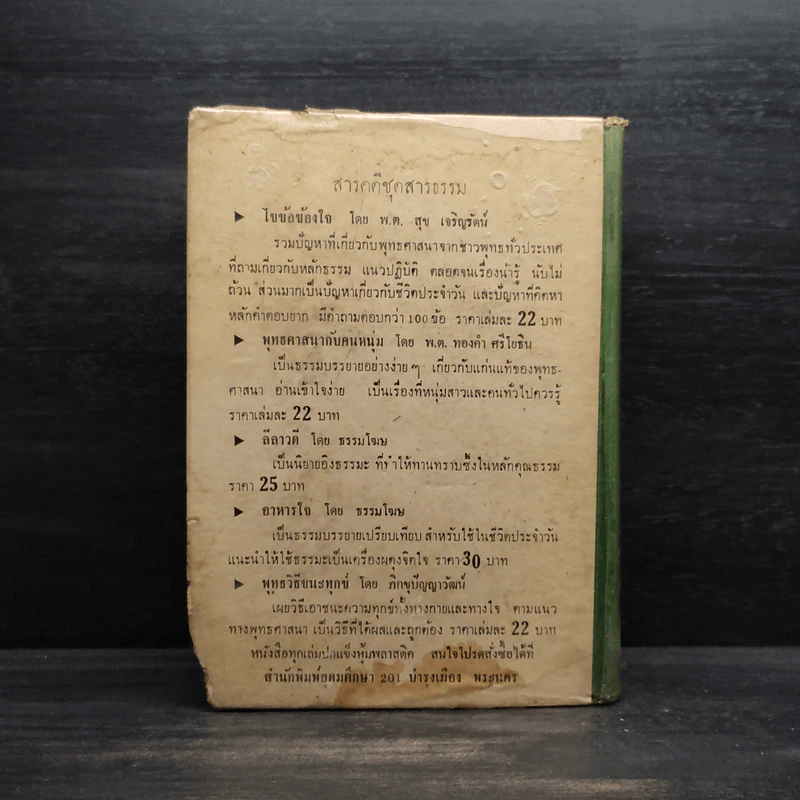 สารคดีชุดสารธรรม
▶ ไขข้อข้องใจ โดย พ.ต. สุข เจริญรัตน์
รวมปัญหาที่เกี่ยวกับพุทธศาสนาจากชาวพุทธทั่วประเทศ
ที่ถามเกี่ยวกับหลักธรรม แนวปฏิบัติ ตลอดจนเรื่องน่ารู้ นับไม่
ถ้วน ส่วนมากเป็นปัญหาเกี่ยวกับชีวิตประจำวัน และปัญหาที่คิดหา
หลักคำตอบยาก มีคำถามตอบกว่า 100 ข้อ ราคาเล่มละ 22 บาท
▶ พุทธศาสนากับคนหนุ่ม โดย พ.ต. ทองคำ ศรีโยธิน
เป็นธรรมบรรยายอย่างง่าย ๆ เกี่ยวกับแก่นแท้ของพุทธ-
ศาสนา อ่านเข้าใจง่าย เป็นเรื่องที่หนุ่มสาวและคนทั่วไปควรรู้
ราคาเล่มละ 22 บาท
▶ ลีลาวดี โดย ธรรมโฆษ
เป็นนิยายอิงธรรมะ ที่ทำให้ทานทราบซึ้งในหลักคุณธรรม
ราคา 25 บาท
▶ อาหารใจ โดย ธรรมโฆษ
เป็นธรรมบรรยายเปรียบเทียบ สำหรับใช้ในชีวิตประจำวัน
แนะนำให้ใช้ธรรมะเป็นเครื่องผดุงจิตใจ ราคา 30 บาท
▶ พุทธวิธีชนะทุกข์ โดย ภิกขุปัญญาวัฒน์
เผยวิธีเอาชนะความทุกข์ทั้งทางกายและทางใจ ตามแนว
ทางพุทธศาสนา เป็นวิธีที่ได้ผลและถูกต้อง ราคาเล่มละ 22 บาท
หนังสือทุกเล่มปกแข็งหุ้มพลาสติค สนใจโปรดสั่งซื้อได้ที่
สำนักพิมพ์อุดมศึกษา 201 บำรุงเมือง พระนคร